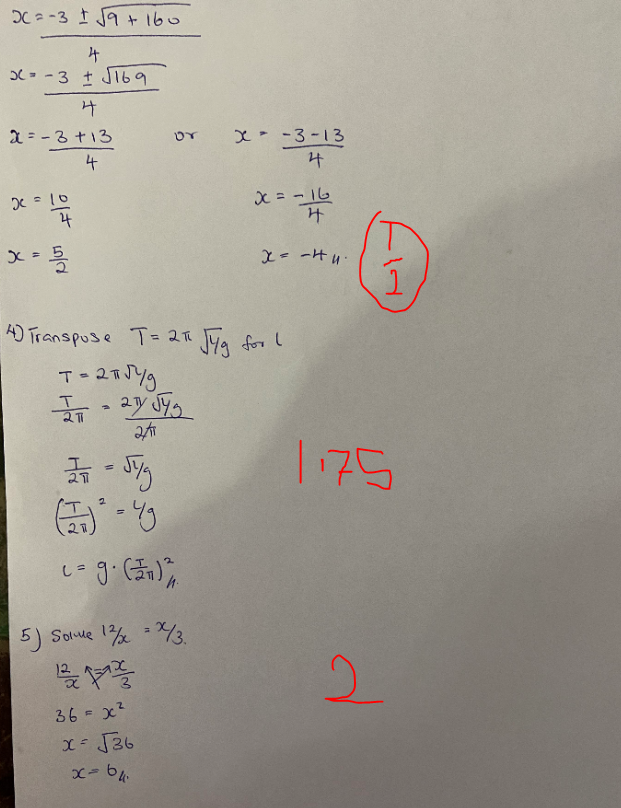 x = -3 ± √9 + 160 / 4
x = -3 ± √169 / 4
x = -3 + 13 / 4 or x = -3 - 13 / 4
x = 10/4 x = -16/4
x = 5/2 x = -4 //.
4) Transpose T = 2π √l/g for l
T = 2π √l/g
T/2π = 2π √l/g / 2π
T/2π = √l/g
1.75
(T/2π)² = l/g
l = g · (T/2π)² //.
5) Solve 12/x = x/3.
12/x = x/3
2
36 = x²
x = √36
x = 6 //.